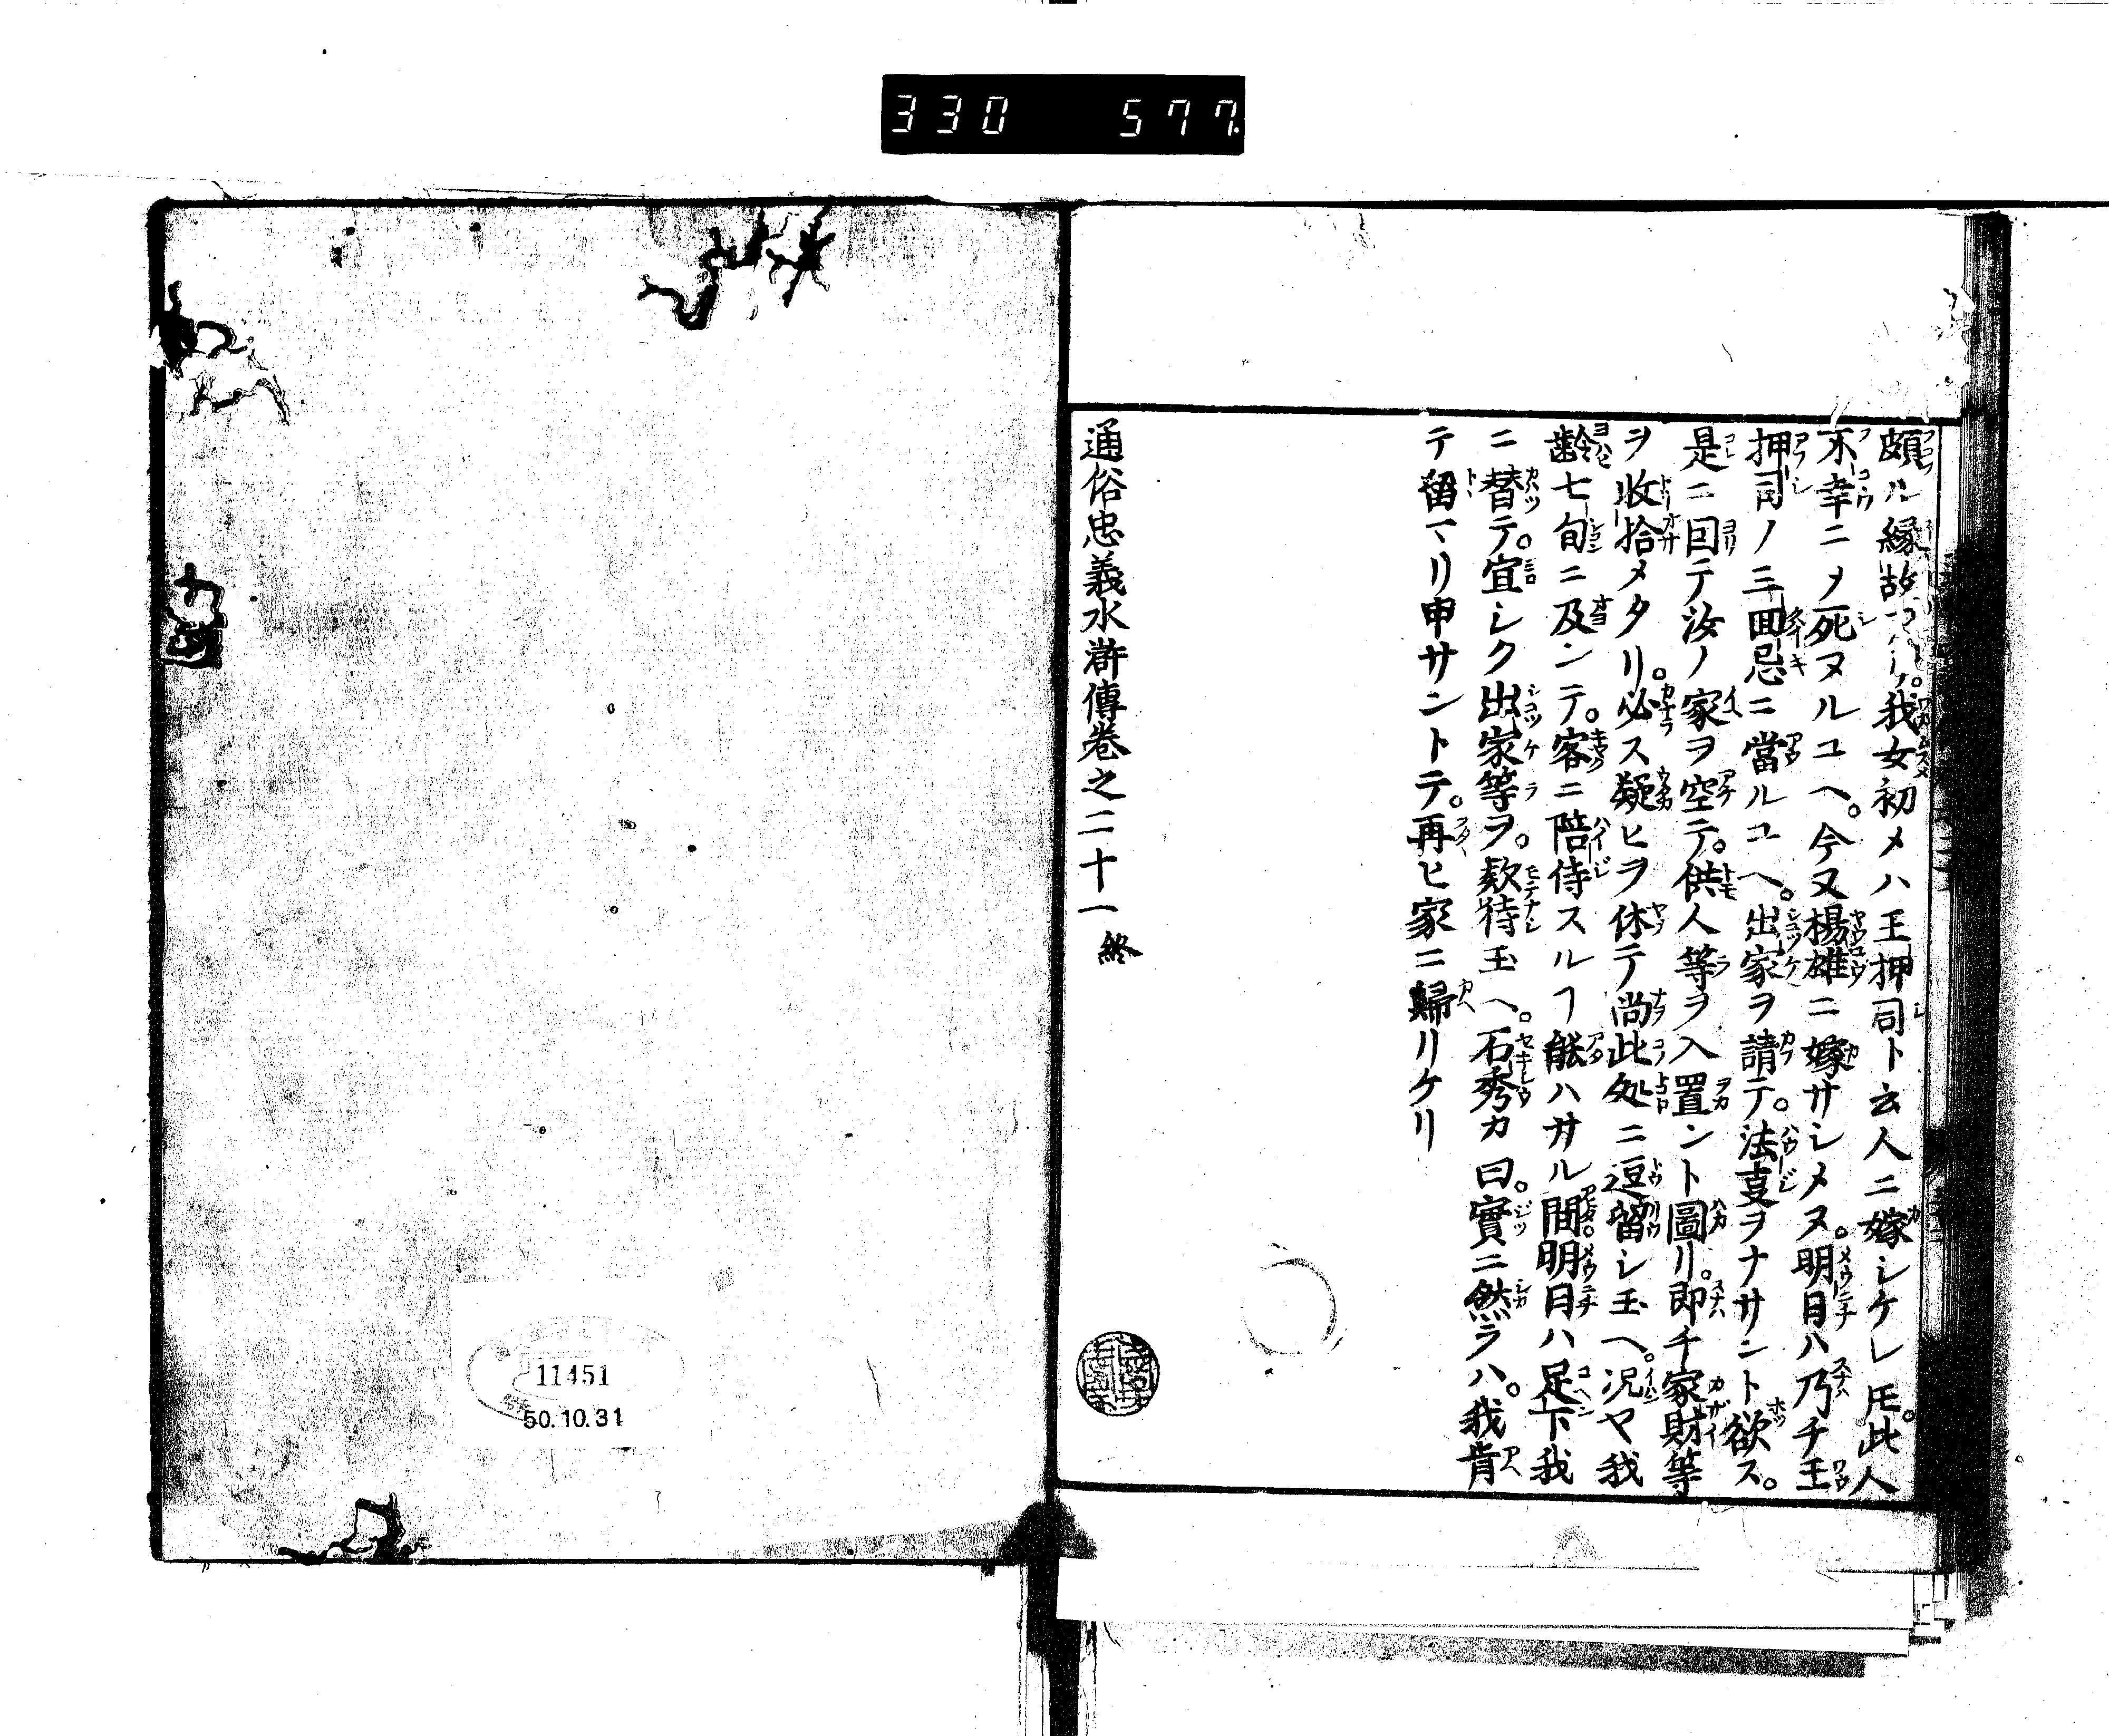 330 577.
頗ル縁故アリ。我女初メハ王押司ト云人ニ嫁シケレ𪜈。此人
不幸ニメ死ヌルユヘ。今又楊雄ニ嫁サシメヌ。明日ハ乃チ王
押司ノ三囬忌ニ當ルユヘ。出家ヲ請テ。法㕝ヲナサント欲ス。
是ニ回テ汝ノ家ヲ空テ。供人等ヲ入置ント圖リ。即チ家財等
ヲ收拾メタリ。必ス疑ヒヲ休テ尚此処ニ逗留シ玉ヘ。况ヤ我
齢七旬ニ及ンテ。客ニ陪侍スルヿ能ハサル間。明日ハ足下我
ニ替テ。宜シク出家等ヲ。欵待玉ヘ。石秀カ曰。實ニ然ラハ。我肯
テ留マリ申サントテ。再ヒ家ニ歸リケリ
通俗忠義水滸傳卷之二十一終
11451
50.10.31